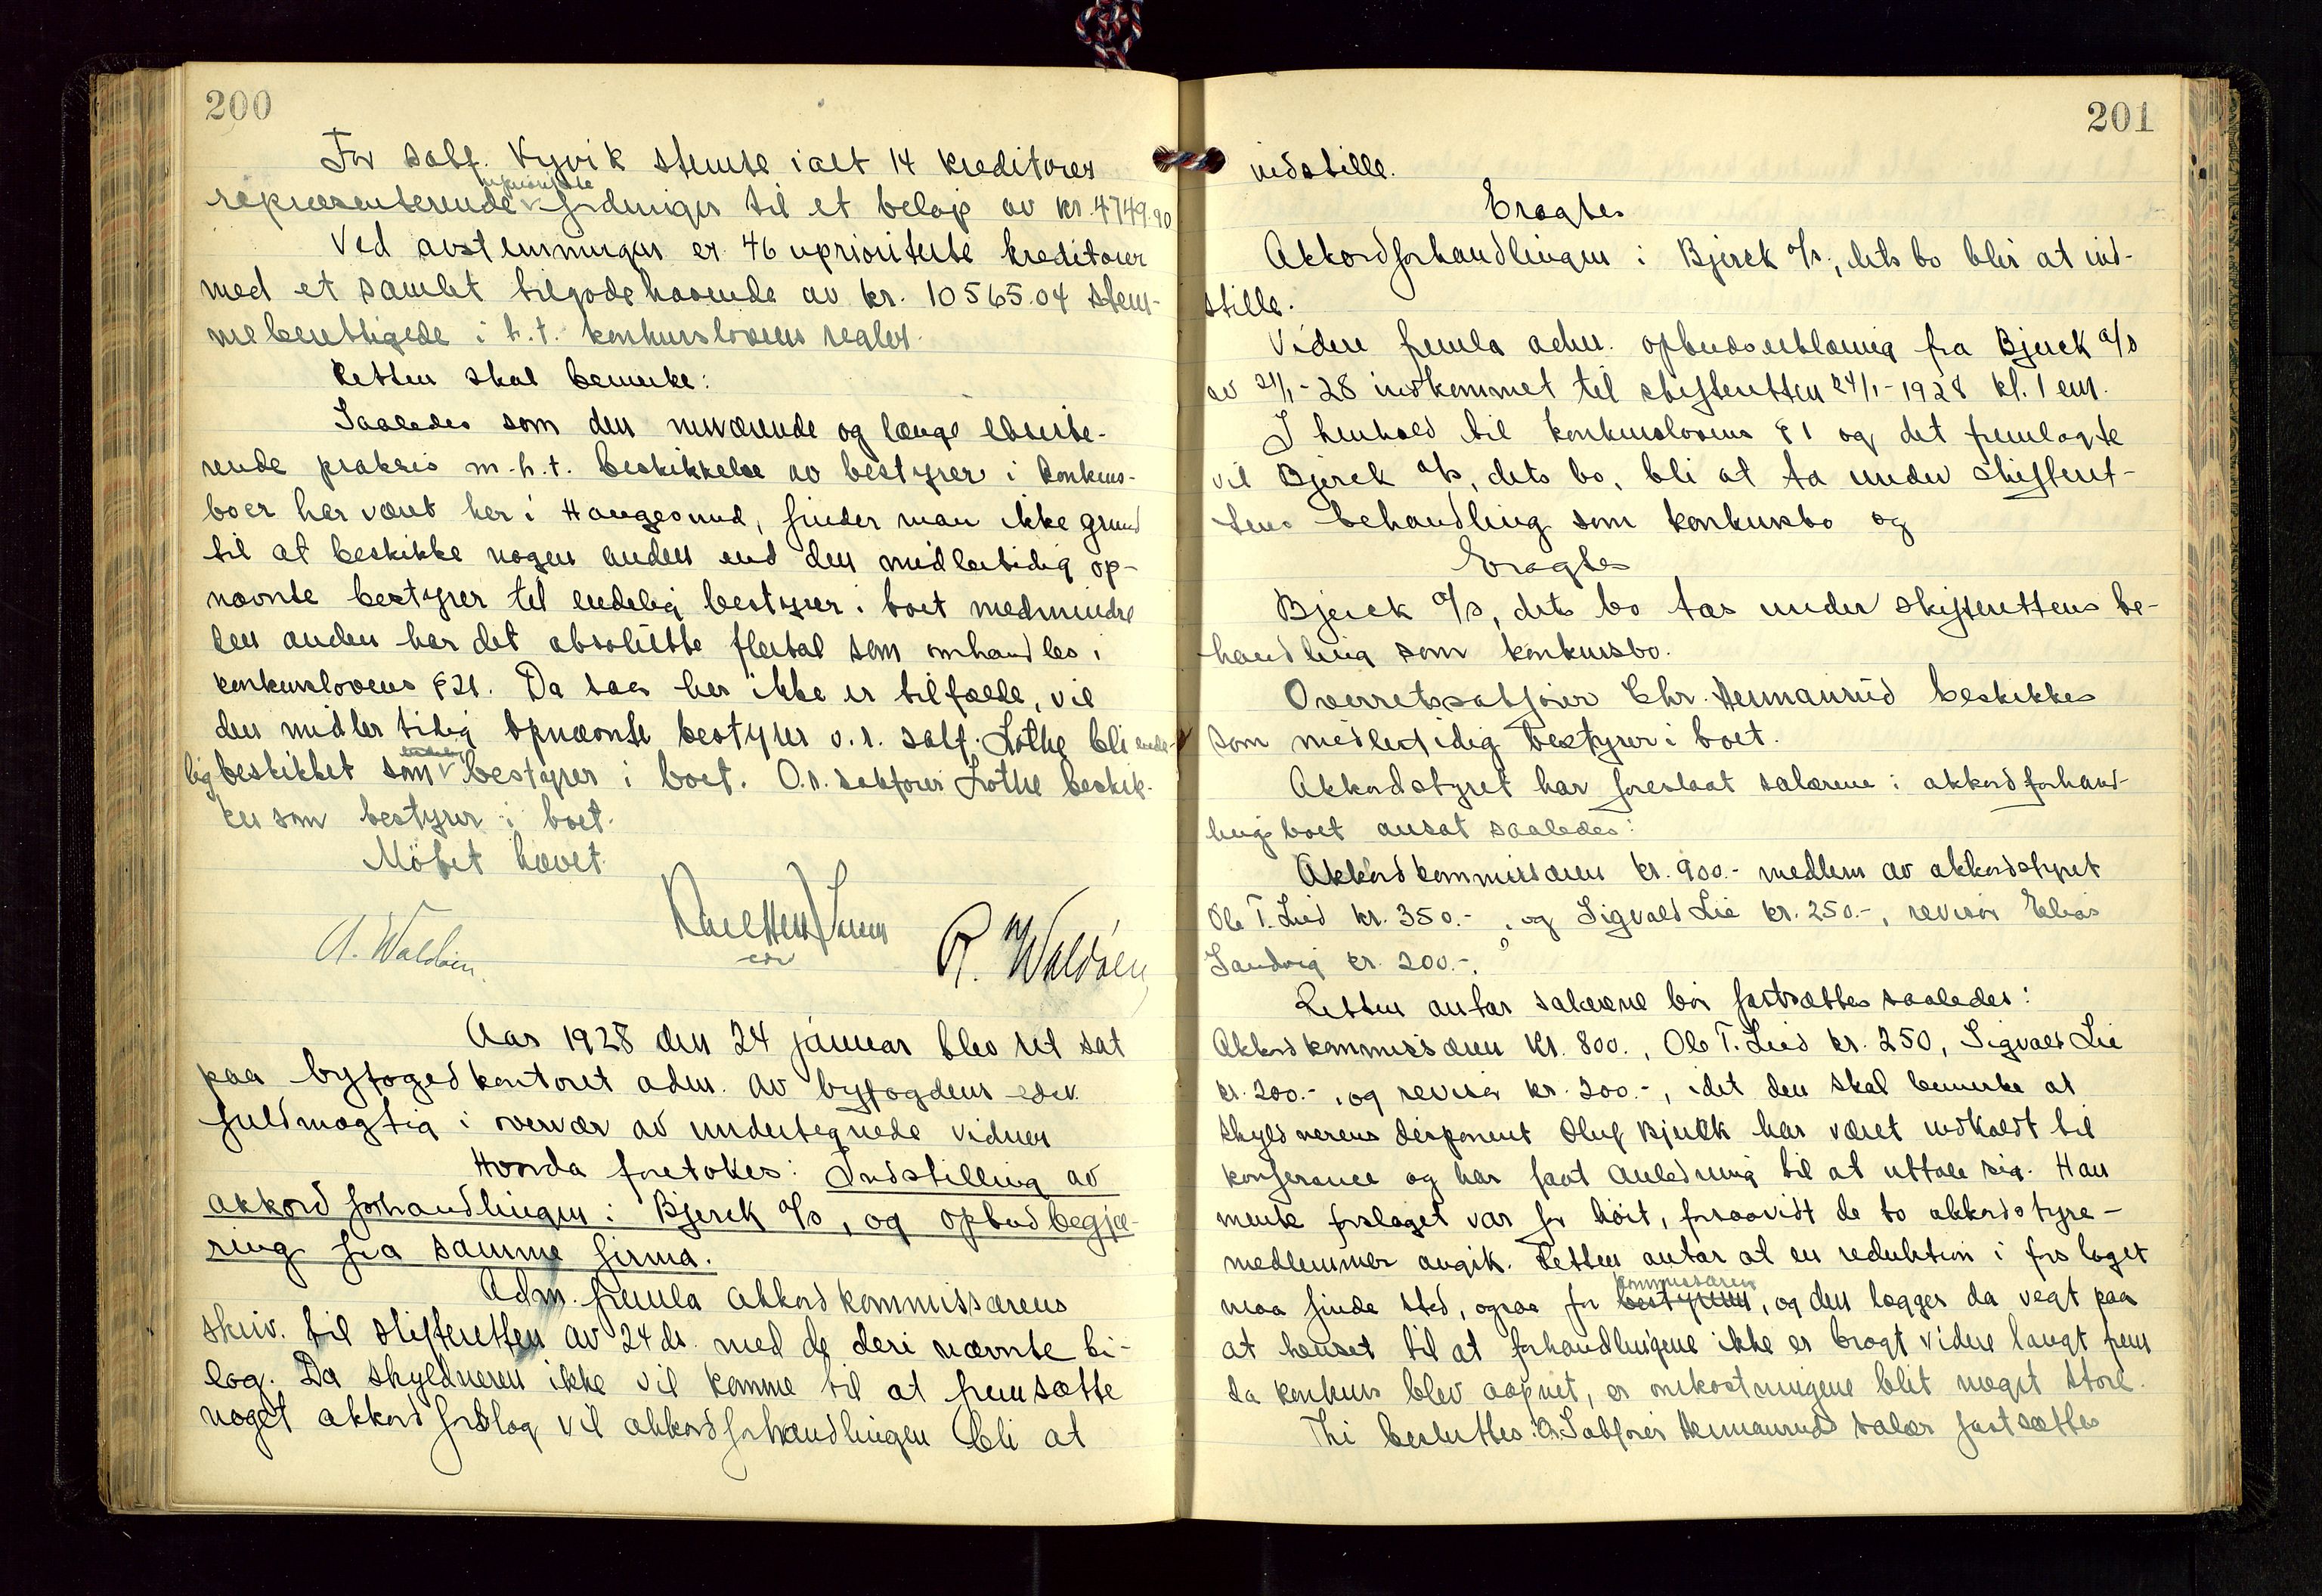 200
For sakf. Kyvik stemte ialt 14 kreditorer
uprioriterte
repræsenterende fordringer til et beløp av kr. 4749.90
Ved avstemningen er 46 uprioriterte kreditorer
med et samlet tilgodehavende av kr. 10565.04 stem-
meberettigede i h.t. konkurslovens regler.
Retten skal bemerke:
Saaledes som den nuværende og længe eksiste-
rende praksis m.h.t. beskikkelse av bestyrer i konkurs-
boer har været her i Haugesund, finder man ikke grund
til at beskikke nogen anden end den midlertidig op-
nævnte bestyrer til endelig bestyrer i boet medmindre
den anden har det absolutte flertal som omhandles i
konkurslovens §21. Da saa her ikke er tilfælde, vil
den midlertidig opnævnte bestyrer o.r. sakf. Lothe bli ende-
lig beskikket som bestyrer i boet. O.r. sakfører Lothe beskik-
kes som bestyrer i boet.
Møtet hævet.
A. Waldøen
cdv
R. Waldøen
Aar 1928 den 24 januar blev ret sat
paa byfogedkontoret adm. av byfogdens edsv.
fuldmægtig i overvær av undertegnede vidner
Hvorda foretokes: Indstilling av
akkordforhandlingen i Bjerck A/S, og opbudbegjæ-
ring fra samme firma.
Adm. fremla akkordkommissærens
skriv. til skifteretten av 24 ds. med de deri nævnte bi-
lag. Da skyldneren ikke vil komme til at fremsætte
noget akkordforslag vil akkordforhandlingen bli at
201
indstille.
Eragtes
Akkordforhandlingen i Bjerck A/S, dets bo blir at ind-
stille.
Videre fremla adm. opbudserklæring fra Bjerck A/S
av 21/1-28 indkommet til skifteretten 24/1-1928 kl. 1 em.
I henhold til konkurslovens §1 og det fremlagte
vil Bjerck A/S, dets bo, bli at ta under skifteret-
tens behandling som konkursbo og
Eragtes
Bjerck A/S, dets bo tas under skifterettens be-
handling som konkursbo.
Overretssakfører Chr. Hermanrud beskikkes
som midlertidig bestyrer i boet.
Akkordstyret har foreslaat salærene i akkordforhand-
lingsboet ansat saaledes:
Akkordkommissæren kr. 900.- medlem av akkordstyret
Ole T. Lied kr. 350.-, og Sigvald Lie kr. 250.-, revisor Elias
Sandvig kr. 200.-.
Retten antar salærene bør fastsættes saaledes:
Akkordkommissæren kr. 800., Ole T. Lied kr. 250, Sigvald Lie
kr. 200.-, og revisor kr. 200.-, idet den skal bemerke at
skyldnerens disponent Oluf Bjerck har været indkaldt til
konferance og har faat anledning til at uttale sig. Han
mente forslaget var for høit, forsaavidt de to akkordstyre-
medlemmer angik. Retten antar at en reduktion i forslaget
kommissæren
maa finde sted, ogsaa for bestyreren, og den lægger da vegt paa
at henset til at forhandlingene ikke er bragt videre langt frem
da konkurs blev aapnet, er omkostningene blit noget store.
Thi besluttes: Or. Sakfører Hermanrud salær fastsættes